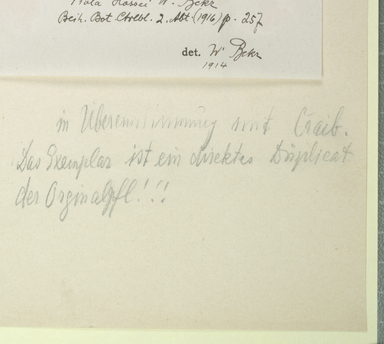 Viola Hossei W. Bckr
Beih. Bot. Ctrlbl. 2. Abt. (1916) p. 257
det. W. Bckr
1914
in Übereinstimmung mit Craib.
Das Exemplar ist ein direktes Duplicat
der Orginalpfl!!!